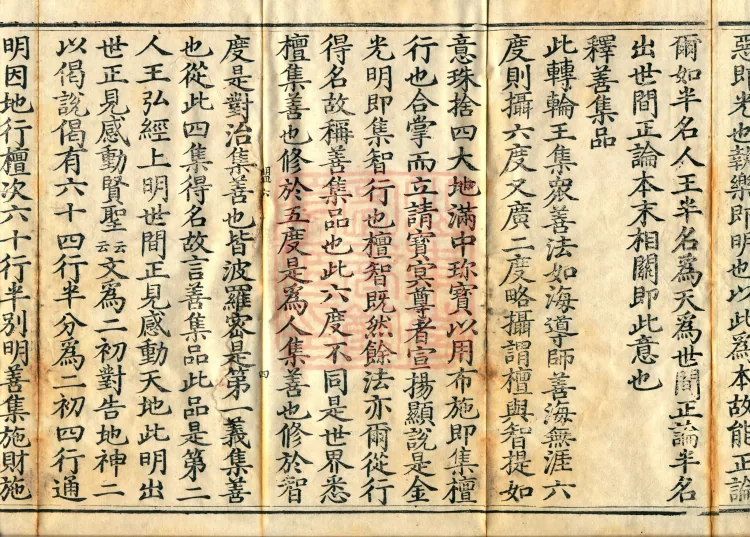 惡即光也翻樂即明也以此爲本故能正論
爾如半名人王半名爲天爲世間正論半名
出世間正論本末相關即此意也
釋善集品
此轉輪王集衆善法如海導師善海無涯六
度則攝六度文廣二度略攝謂檀與智提如
意珠捨四大地滿中珎寶以用布施即集檀
行也合掌而立請寶冥尊者宣揚顯說是金
光明即集智行也檀智既然餘法亦爾從行
得名故稱善集品也此六度不同是世界悉
檀集善也修於五度是爲人集善也修於智
盟六
四
度是對治集善也皆波羅宻是第一義集善
也從此四集得名故言善集品此品是第二
人王弘經上明世間正見感動天地此明出
世正見感動賢聖云云文爲二初對告地神二
以偈說偈有六十四行半分爲二初四行通
明因地行檀次六十行半別明善集施財施